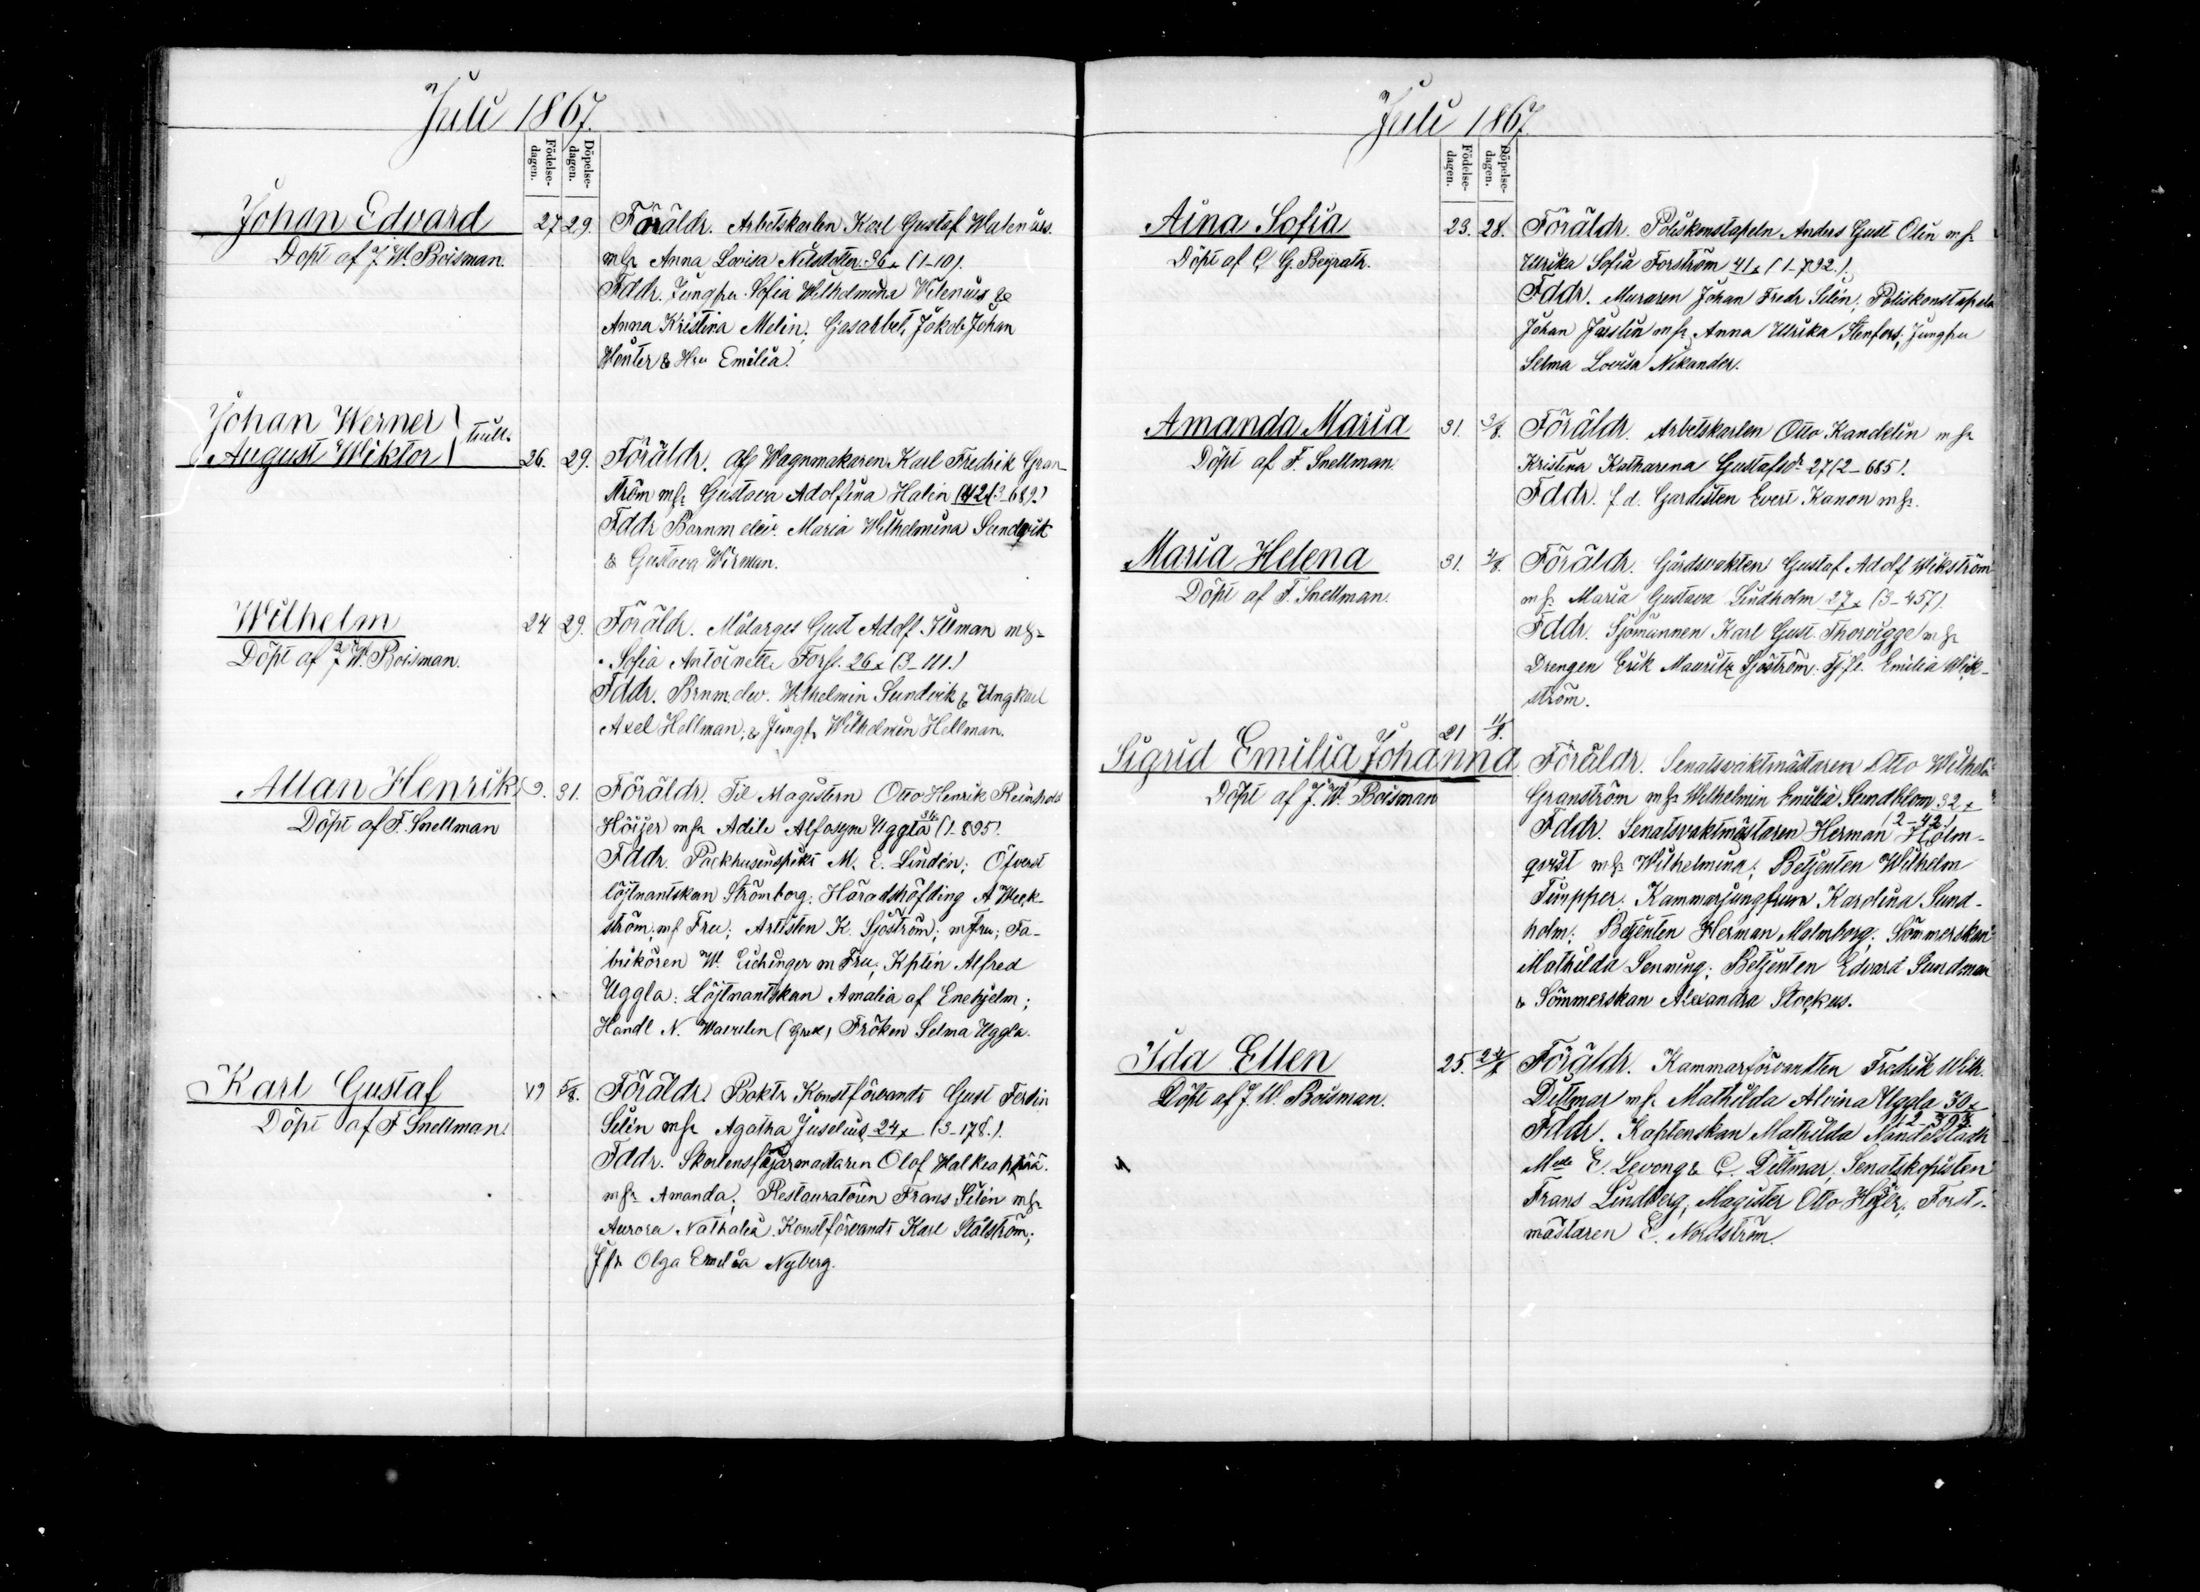 Juli 1867.
Födelse-dagen.
Döpelse-dagen.
Johan Edvard 27 29. Föräldr. Arbetskarlen Karl Gustaf
Döpt af J. W. Boisman. mhr Anna Lovisa Nilsdotter 36 (1-10).
Fddr. Jungfru Sofia Wilhelmina Wilenius &
Anna Kristina Melin; Gasarbet, Jakob Johan
& Hru Emilia.
Johan Werner
August Wiktor 26. 29. Föräldr. Wagnmakaren Karl Fredrik Gran-
ström mhr Gustava Adolfina Halin
Fddr Barnm Maria Wilhelmina Sundvik
& Gustava Wirman.
Wilhelm 24 29. Föräldr. Målarges Gust Adolf Illman mhr
Döpt af J. W. Boisman. Sofia Antoinette Forss. 26 (3-111.)
Fddr. Wilhelmin Sundvik & Ungkarl
Axel Hellman; & Jungf. Wilhelmin Hellman.
Allan Henrik 9. 31. Föräldr. Fil Magistern Otto Henrik Reinhold
Döpt af F. Snellman Höijer mhr Adile Uggla (1-895).
Fddr. Packhusinspekt M. E. Lindén; Öfverst
löjtnantskan Strömborg; Häradshöfding A Weck-
ström, m Fru; Artisten K. Sjöström; m fru; Fa-
brikören W. Eichinger m Fru; Kptin Alfred
Uggla; Löjtnantskan Amalia af Enehjelm;
Handl N. Wavulin (Grek) Fröken Selma Uggla.
Karl Gustaf 19 5/8. Föräldr. Konstförvandt Gust Ferdin
Döpt af F Snellman. Selin mhr Agatha Juselius 24 (3-178.).
Fddr. Olof
mhr Amanda; Restauratören Frans Selin mhr
Aurora Nathalia. Konstförvandt Karl Stålström;
Jfr Olga Emilia Nyberg.
Juli 1867.
Födelse-dagen.
Döpelse-dagen.
Aina Sofia 23. 28. Föräldr. Poliskonstapeln Anders Gust Olin mhr
Döpt af C. G. Beyrath. Ulrika Sofia Forström 41 (1-792.).
Fddr. Muraren Johan Fredr Selin; Poliskonstapeln
Johan Juslin mhr Anna Ulrika Stenfors; Jungfru
Selma Lovisa Nikander.
Amanda Maria 31. 3/8. Föräldr. Arbetskarlen Otto Kandelin mhr
Döpt af F. Snellman. Kristina Katharina Gustafsdr 27 (2-685).
Fddr. f. d. Gardisten Evert Kanon mhr.
Maria Helena 31. 4/8. Föräldr. Gårdsvakten Gustaf Adolf Wikström
Döpt af F. Snellman. mhr Maria Gustava Lindholm 27 (3-457).
Fddr. Sjömannen Karl Gust. mhr
Drengen Erik Mauritz Sjöström; Emilia Wik-
ström.
Sigrid Emilia Johanna 21 11/8. Föräldr. Senatsvaktmästaren Otto Wilhelm
Döpt af J. W. Boisman Granström mhr Wilhelmin Emilia Sundblom 32
(2-42)
Fddr. Senatsvaktmästaren Herman Holm-
qvist mhr Wilhelmina; Betjenten Wilhelm
Timpper; Kammarjungfrun Karolina Sund-
holm; Betjenten Herman Malmborg; Sömmerskan
Mathilda Senning; Betjenten Edvard Sundman
& Sömmerskan Alexandra Stockus.
Ida Ellen 25. Föräldr. Kammarförvandten Fredrik Wilh.
Döpt af J. W. Boisman. Dittmar mhr Mathilda Alvina Uggla 30
Fddr. Kaptenskan Mathilda Nandelstadh
E. Levong & C. Dittmar; Senatskopisten
Frans Lindberg; Magister Otto Höijer; Forst-
mästaren E. Nordström.